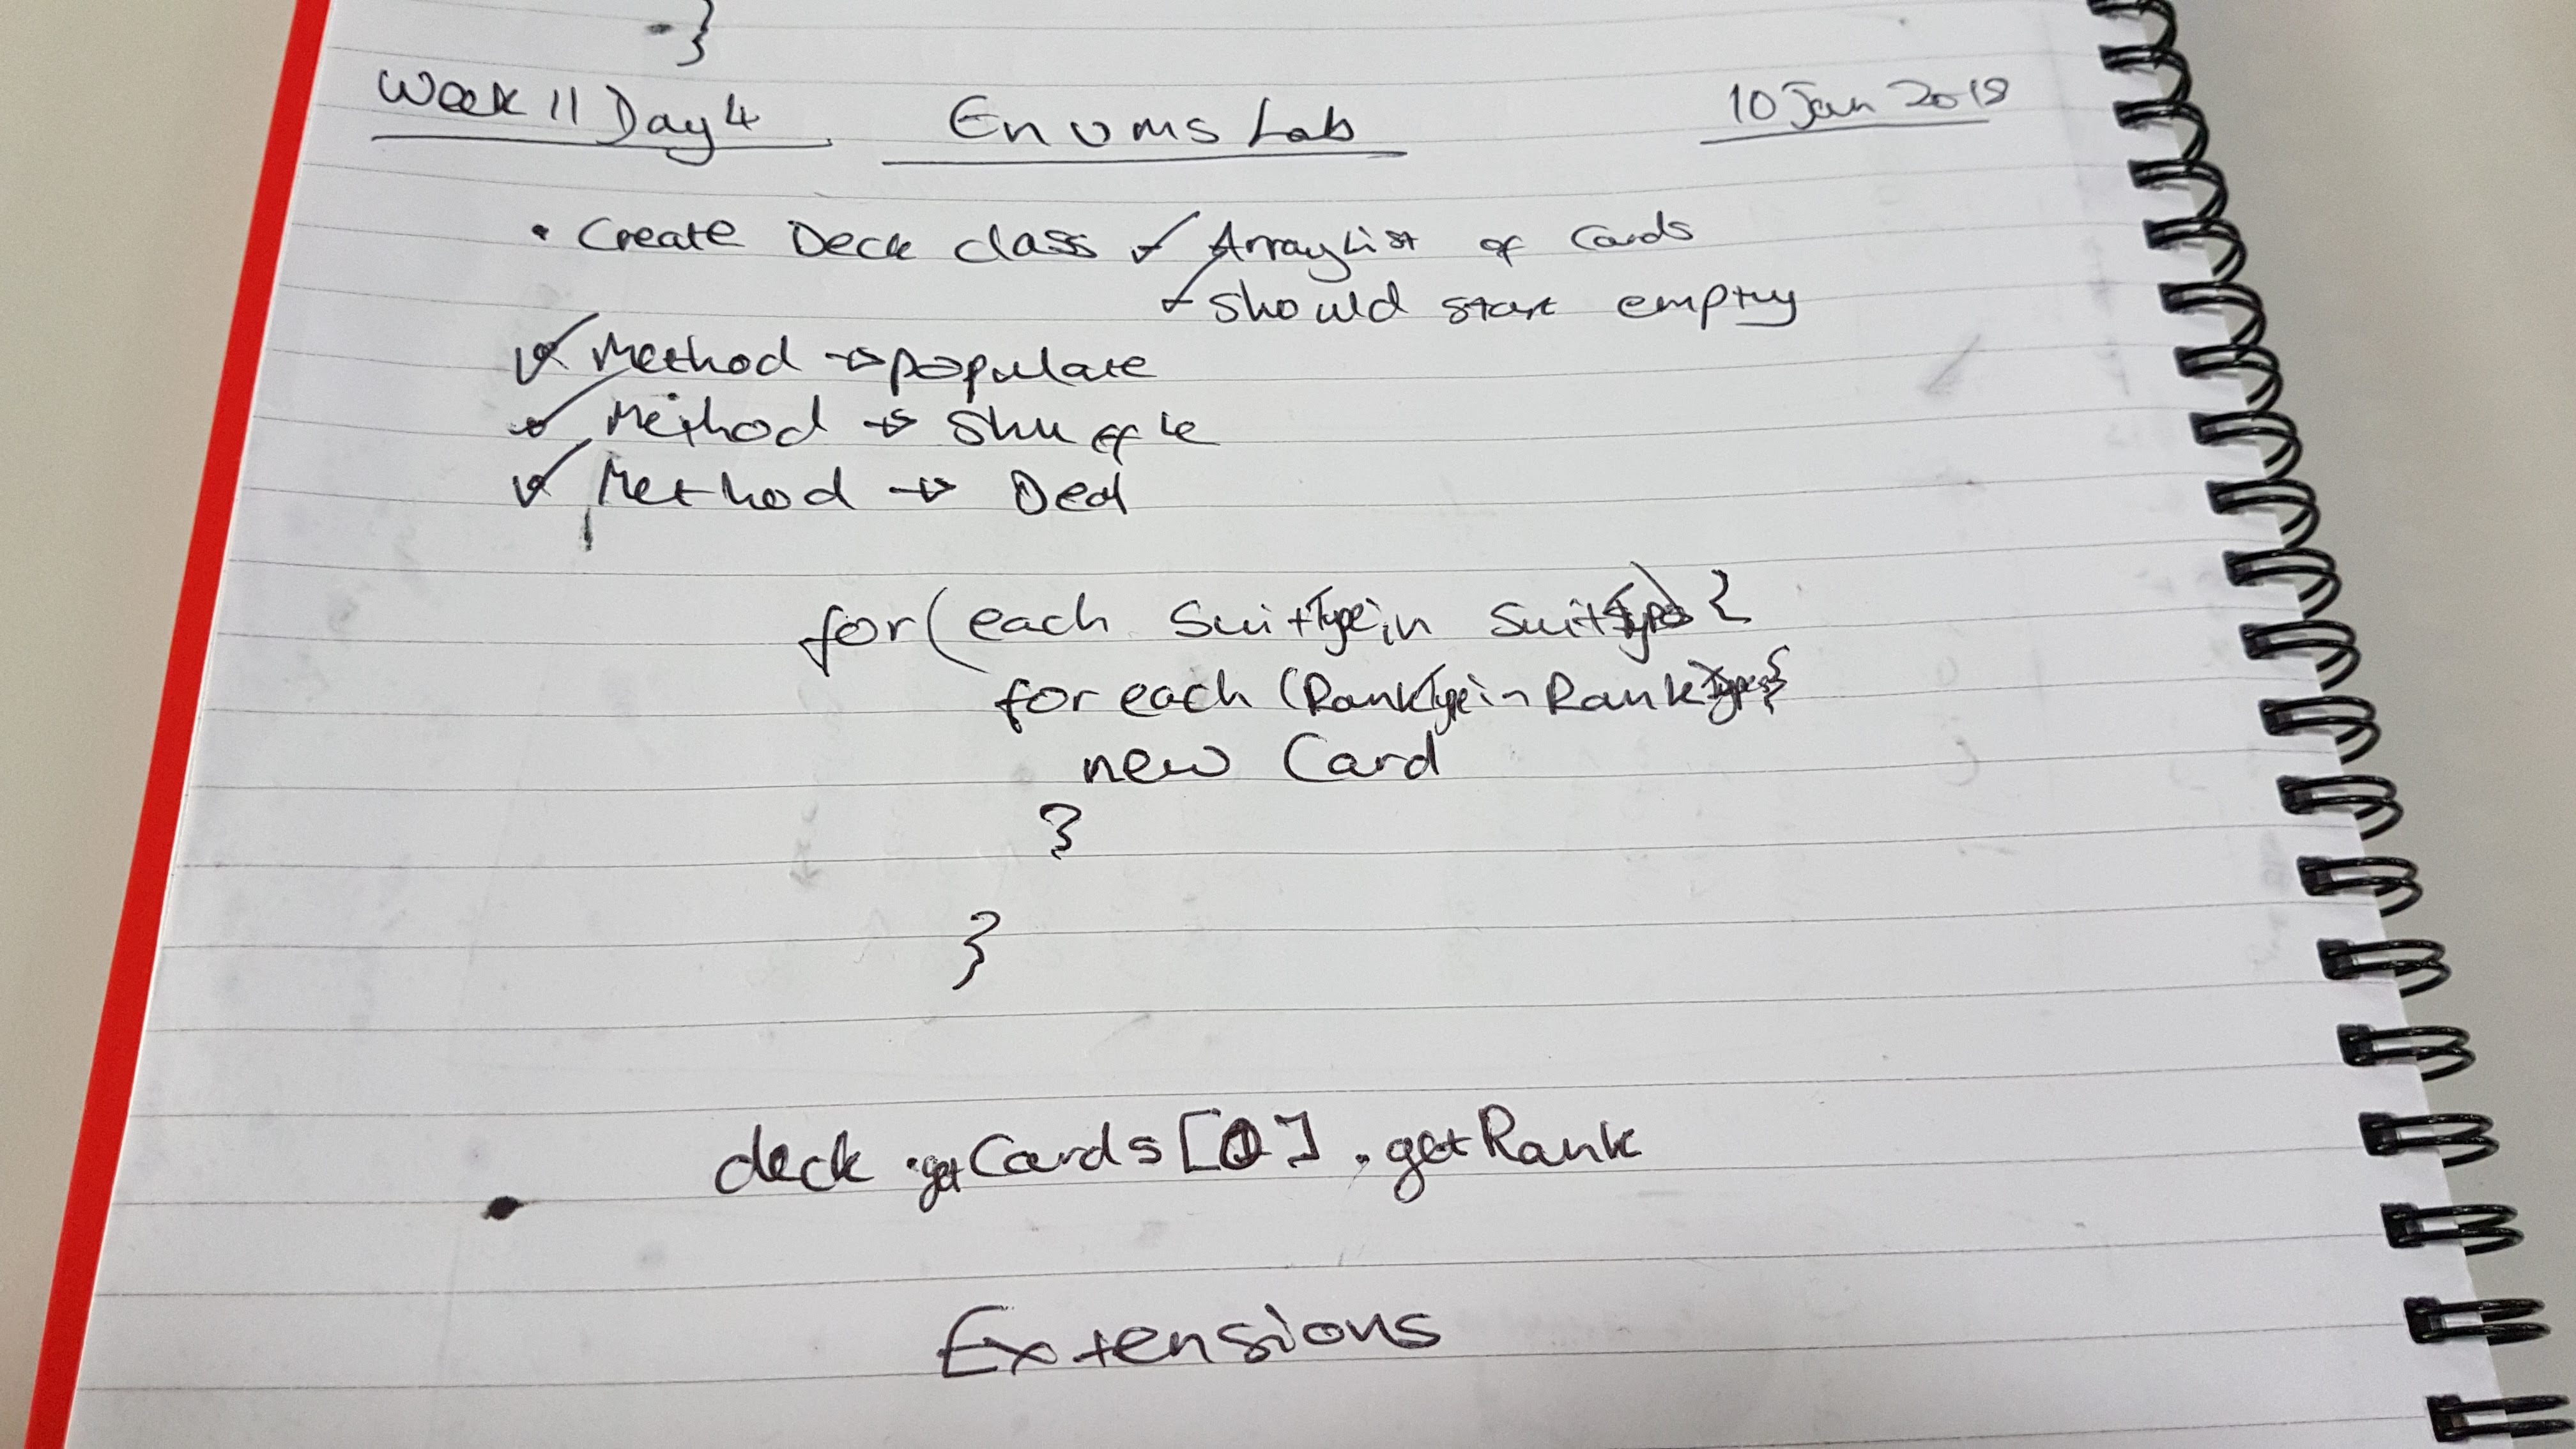 }
Week 11 Day 4 Enums Lab 10 Jan 2018
• Create Deck class ✓ ArrayList of Cards
✓ should start empty
✓ Method → populate
✓ Method → Shuffle
✓ Method → Deal
for( each SuitType in SuitTypes) {
for each (RankType in RankTypes{
new Card
}
}
deck.getCards[0].getRank
Extensions